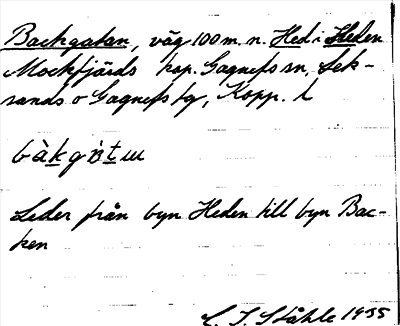 Backgatan, väg 100 m. n. Hed i Heden
Mockfjärds kap. Gagnefs sn, Lek-
sands o Gagnefs tg, Kopp. l
Leder från byn Heden till byn Bac-
ken
C. I. Ståhle 1935